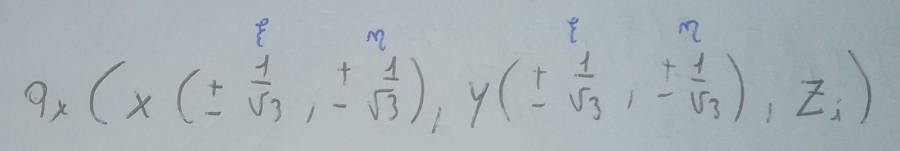 ξ η ξ η
qₓ ( x ( ± 1/√3 , ± 1/√3 ) , y ( ± 1/√3 , ± 1/√3 ) , zᵢ )